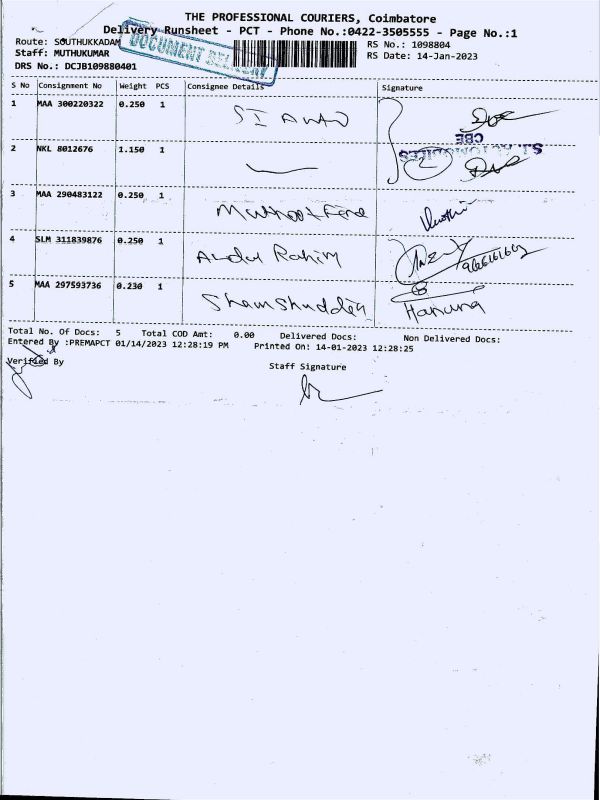 THE PROFESSIONAL COURIERS, Coimbatore
Delivery Runsheet - PCT - Phone No.:0422-3505555 - Page No.:1
Route: SOUTHUKKADAM
RS No.: 1098804
Staff: MUTHUKUMAR
RS Date: 14-Jan-2023
DRS No.: DCJB109880401
DOCUMENT DELIVERY
S No Consignment No Weight PCS Consignee Details Signature
1 MAA 300220322 0.250 1 SI Auto
CBE
2 NKL 8012676 1.150 1
S.I. AUTOMOBILES
3 MAA 290483122 0.250 1 Muthoot Fine
4 SLM 311839876 0.250 1 Abdul Rahim
5 MAA 297593736 0.230 1 Shamshudden Haruna
Total No. Of Docs: 5 Total COD Amt: 0.00 Delivered Docs: Non Delivered Docs:
Entered By :PREMAPCT 01/14/2023 12:28:19 PM Printed On: 14-01-2023 12:28:25
Verified By
Staff Signature